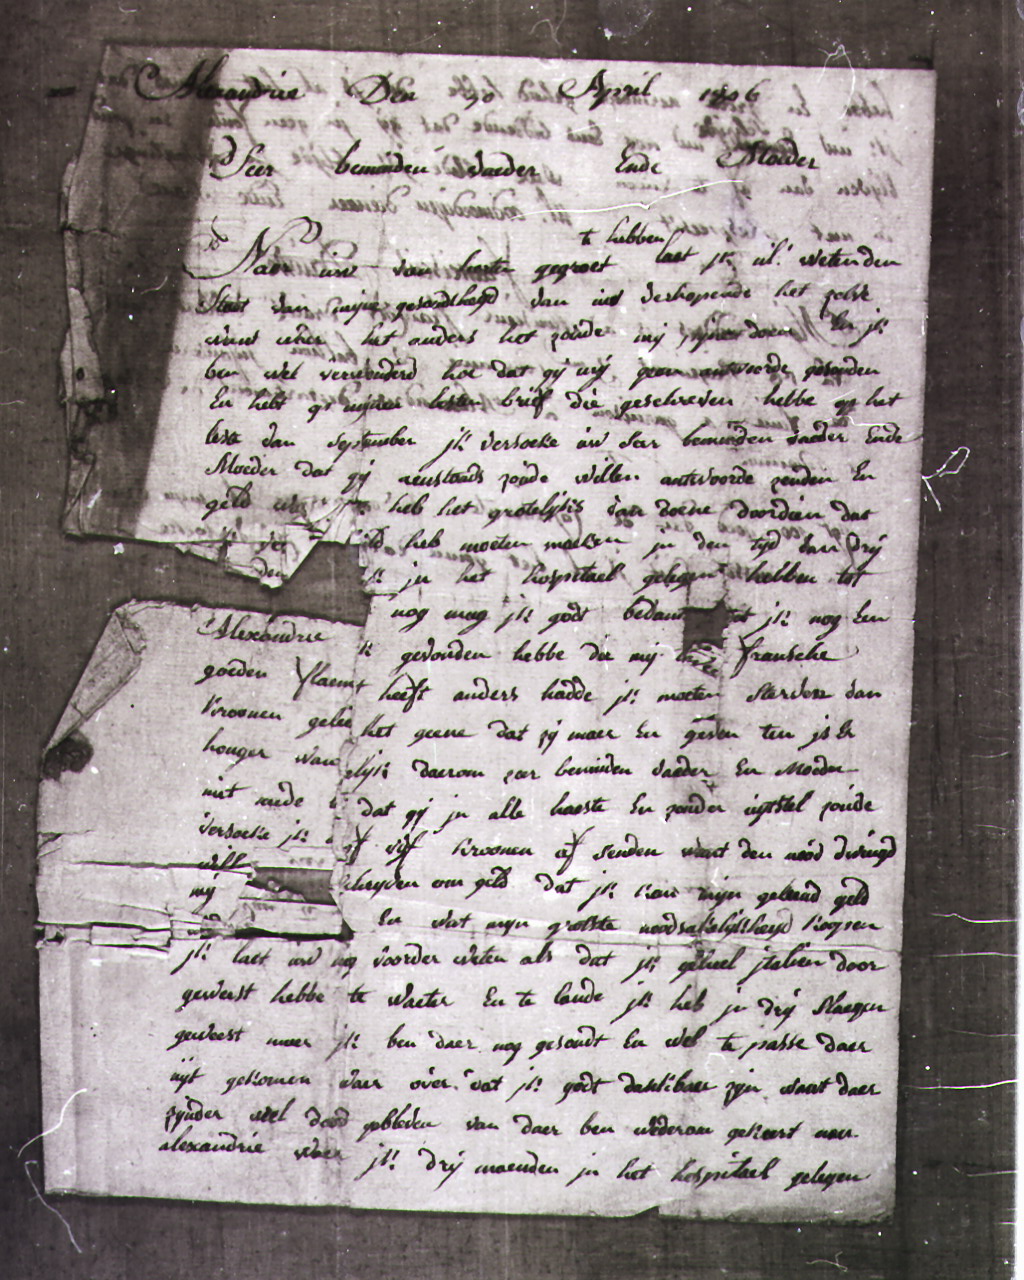 Alexandrie Den 30 April 1806
Seer beminden vaeder Ende Moeder
Naer uw van herten gegroet te hebben laet jk ul. weten den
Staet van mijne gesondheyd van ins verhopende het zelve
van ulien het anders het zoude mij spijten doen En jk
ben wel verwonderd hoe dat gij mij geen antwoorde gesonden
En hebt op mijnen lesten brief die geschreven hebbe op het
leste van September jk versoeke uw Seer beminden vaeder Ende
Moeder dat gij aenstonds zoude willen antwoorde zenden En
geld heb het grotelijks van doene doordien dat
heb moeten maeken jn den tijd van drij
den jn het hospitael gelegen hebben tot
Alexandrie nog mag jk godt bedanken dat jk nog Een
goeden Vlaem gevonden hebbe die mij fransche
kroonen gelee heeft anders hadde jk moeten Sterven van
honger want het geene dat zij maer En geven ten js Er
niet mede daerom zeer beminden vaeder En Moeder
versoeke jk dat gij jn alle haeste En zonder uijtstel zoude
will vijf kroonen af senden want den nood dwingd
mij schryven om geld dat jk kan mijn geleend geld
En wat mijn grotste noodsakelijkheyd koopen
jk laet uw nog voorder weten als dat jk geheel jtalien door
gereyst hebbe te waeter En te lande jk heb jn drij Slaegen
geweest maer jk ben daer nog gesondt En wel te passe daer
uijt gekomen waer over dat jk godt dankbaer zijn want daer
zijnder veel dood gebleven van daer ben wederom gekeert naer
alexandrie waer jk drij maenden jn het hospitael gelegen